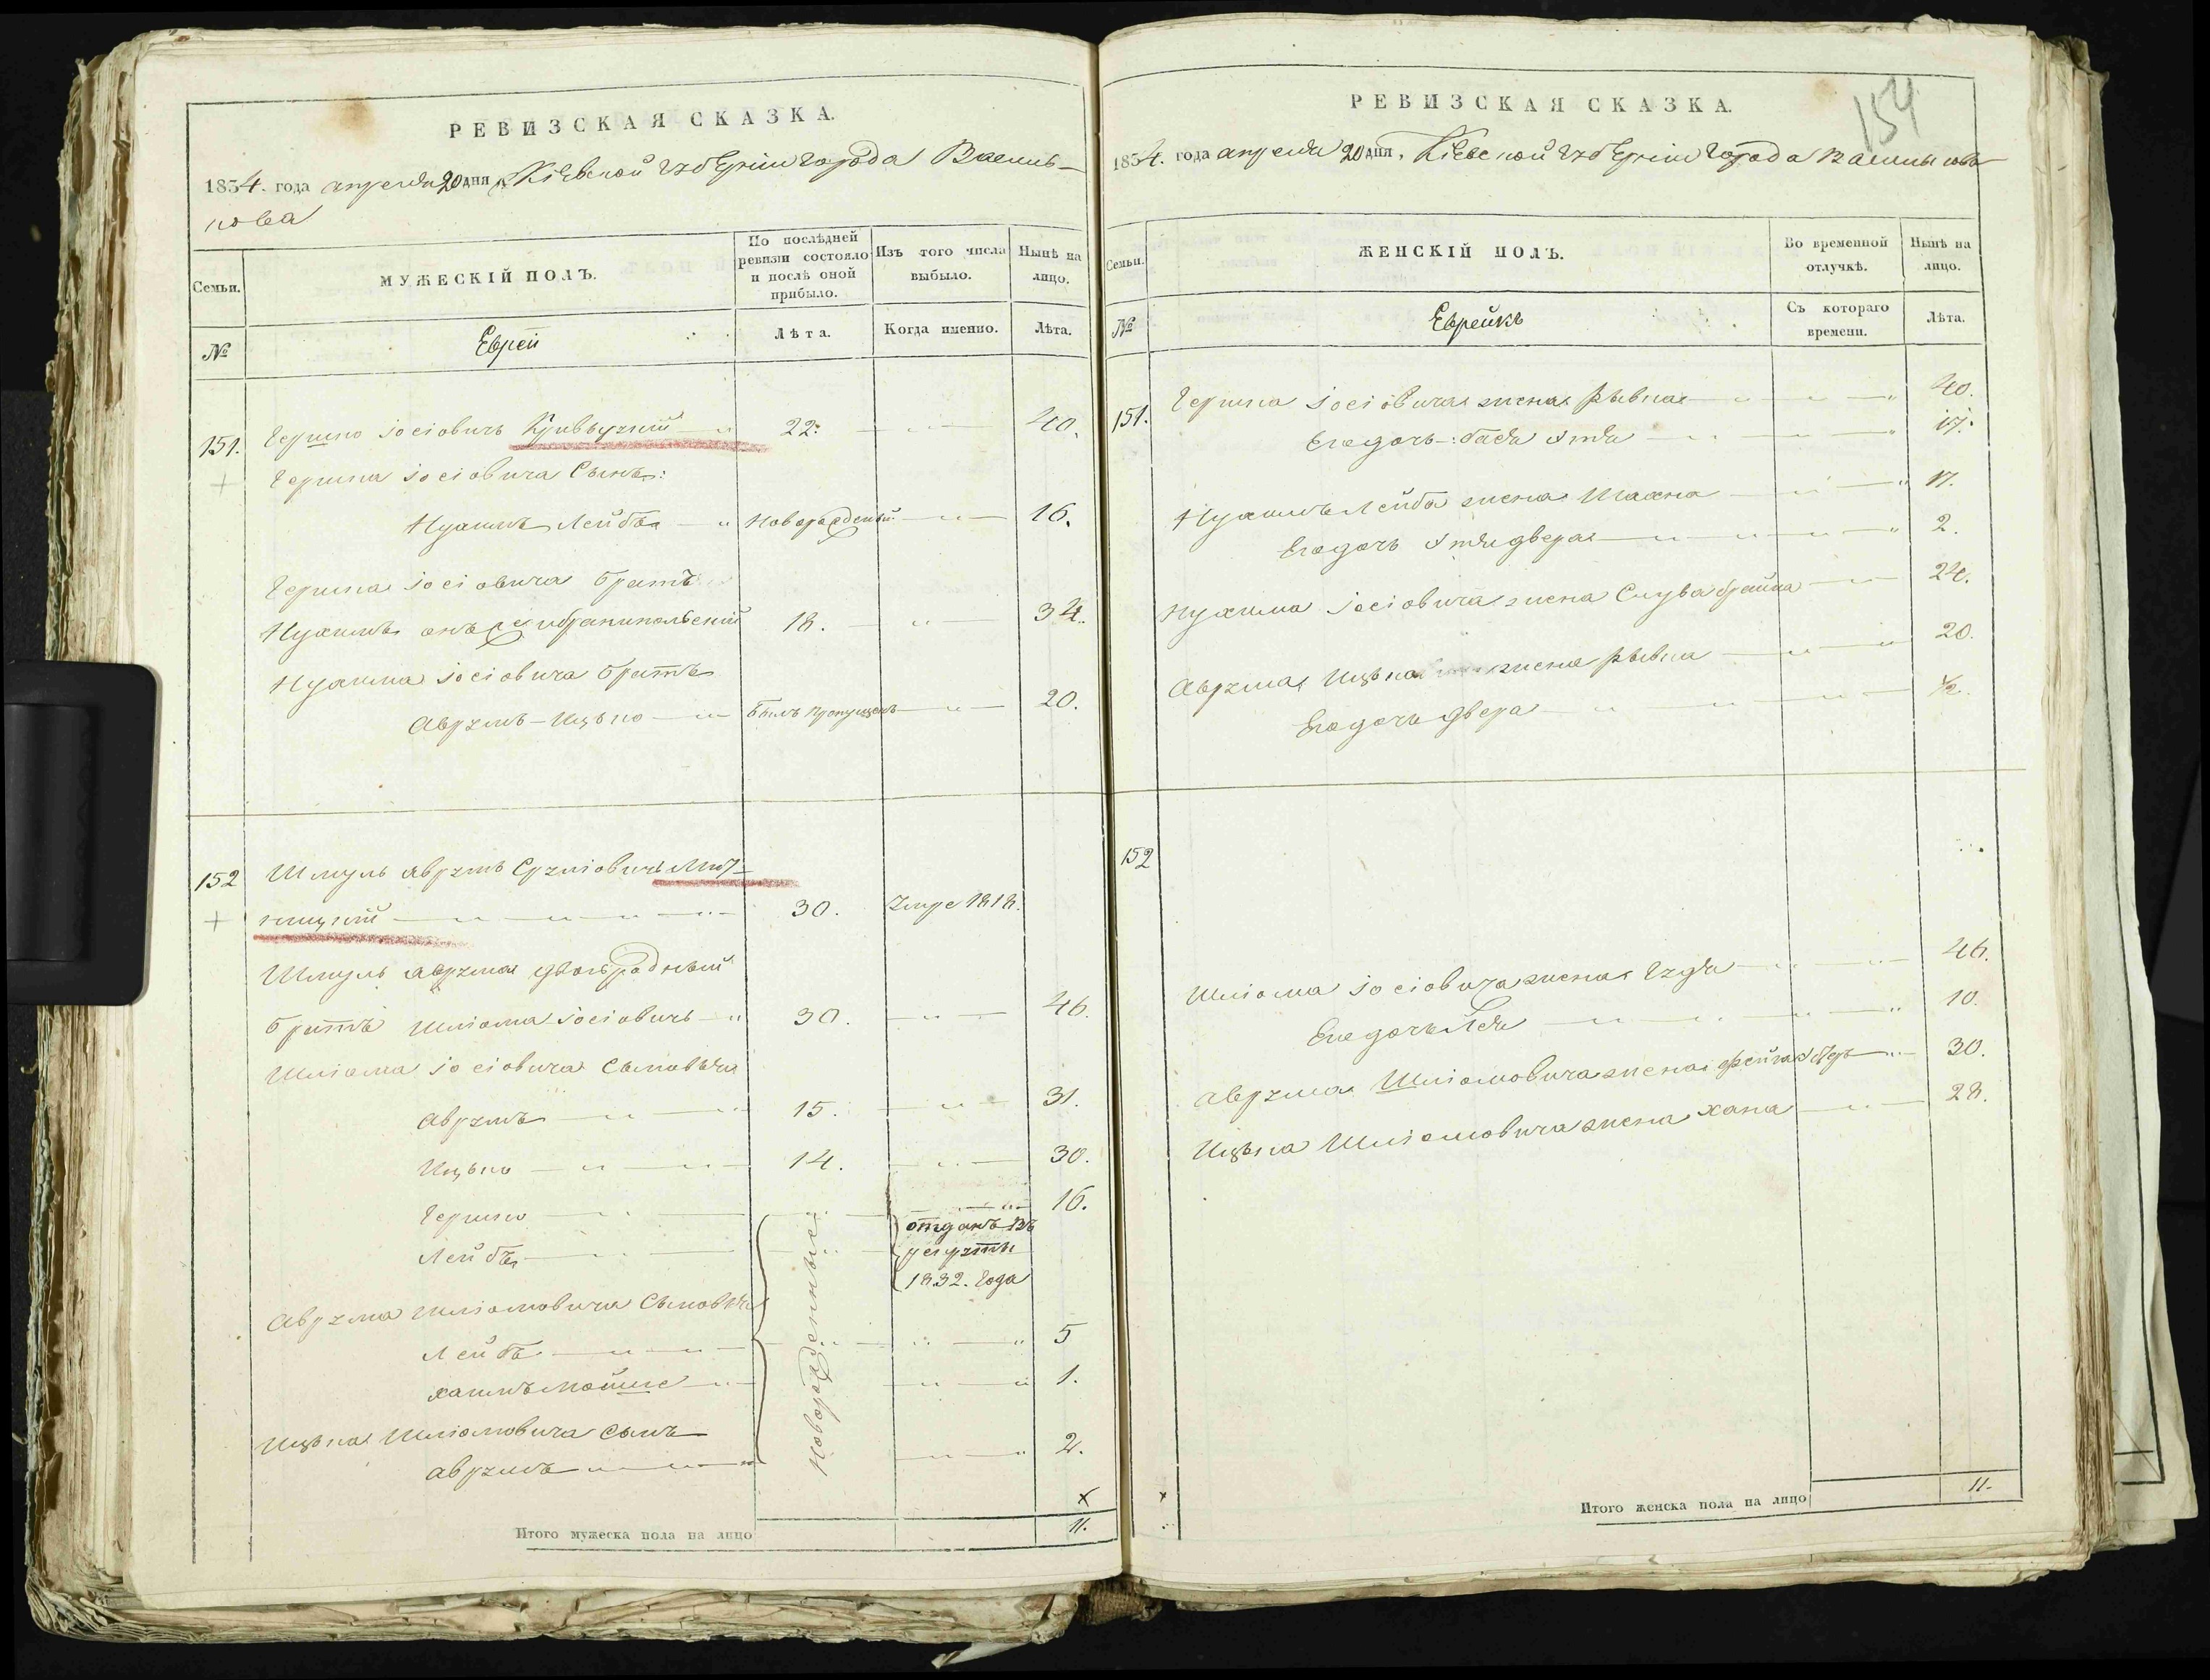 РЕВИЗСКАЯ СКАЗКА.
1834. года апреля 20 дня, Кіевской Губерніи города Василь-
кова
Семьи.
МУЖЕСКІЙ ПОЛЪ.
По послѣдней ревизіи состояло и послѣ оной прибыло.
Изъ того числа выбыло.
Нынѣ на лицо.
№
Еврей
Лѣта.
Когда именно.
Лѣта.
151. Гершко Іосіовичъ 22. 40.
Гершка Іосіовича Сынъ:
Нухимъ Лейба Новорожденый 16.
Гершка Іосіовича братъ
Нухимъ онъ 18. 34.
Нухима Іосіовича братъ
Аврумъ-Ицько былъ пропущенъ 20.
152 Шмуль Аврумъ Сруліовичъ
30. Умре 1818.
Шмуль Аврума двоюродный
братъ Шліома Іосіовичъ 30. 46.
Шліома Іосіовича Сыновья
Аврумъ 15. 31.
Ицько 14. 30.
Гершко 16.
Лейба отданъ въ рекруты 1832. Года
Новорожденные
Аврума Шліомовича Сыновья
Лейба 5
Хаимъ Мойше 1.
Ицька Шліомовича Сынъ
Аврумъ 2.
Итого мужеска пола на лицо 11.
154
РЕВИЗСКАЯ СКАЗКА.
1834. года апреля 20 дня, Кіевской Губерніи города Василькова
Семьи.
ЖЕНСКІЙ ПОЛЪ.
Во временной отлучкѣ.
Нынѣ на лицо.
№
Еврейкѣ
Съ котораго времени.
Лѣта.
151. Гершка Іосіовича жена Рывка 40.
Его дочь: Бася Этля 17.
Нухимъ Лейба жена 17.
Его дочь Этля двера 2.
Нухима Іосіовича жена 24.
Аврума Ицька жена Рывка 20.
Его дочь двера ½.
152
Шліома Іосіовича жена 46.
Его дочь Лея 10.
Аврума Шліомовича жена 30.
Ицька Шліомовича жена Хана 28.
Итого женска пола на лицо 11.